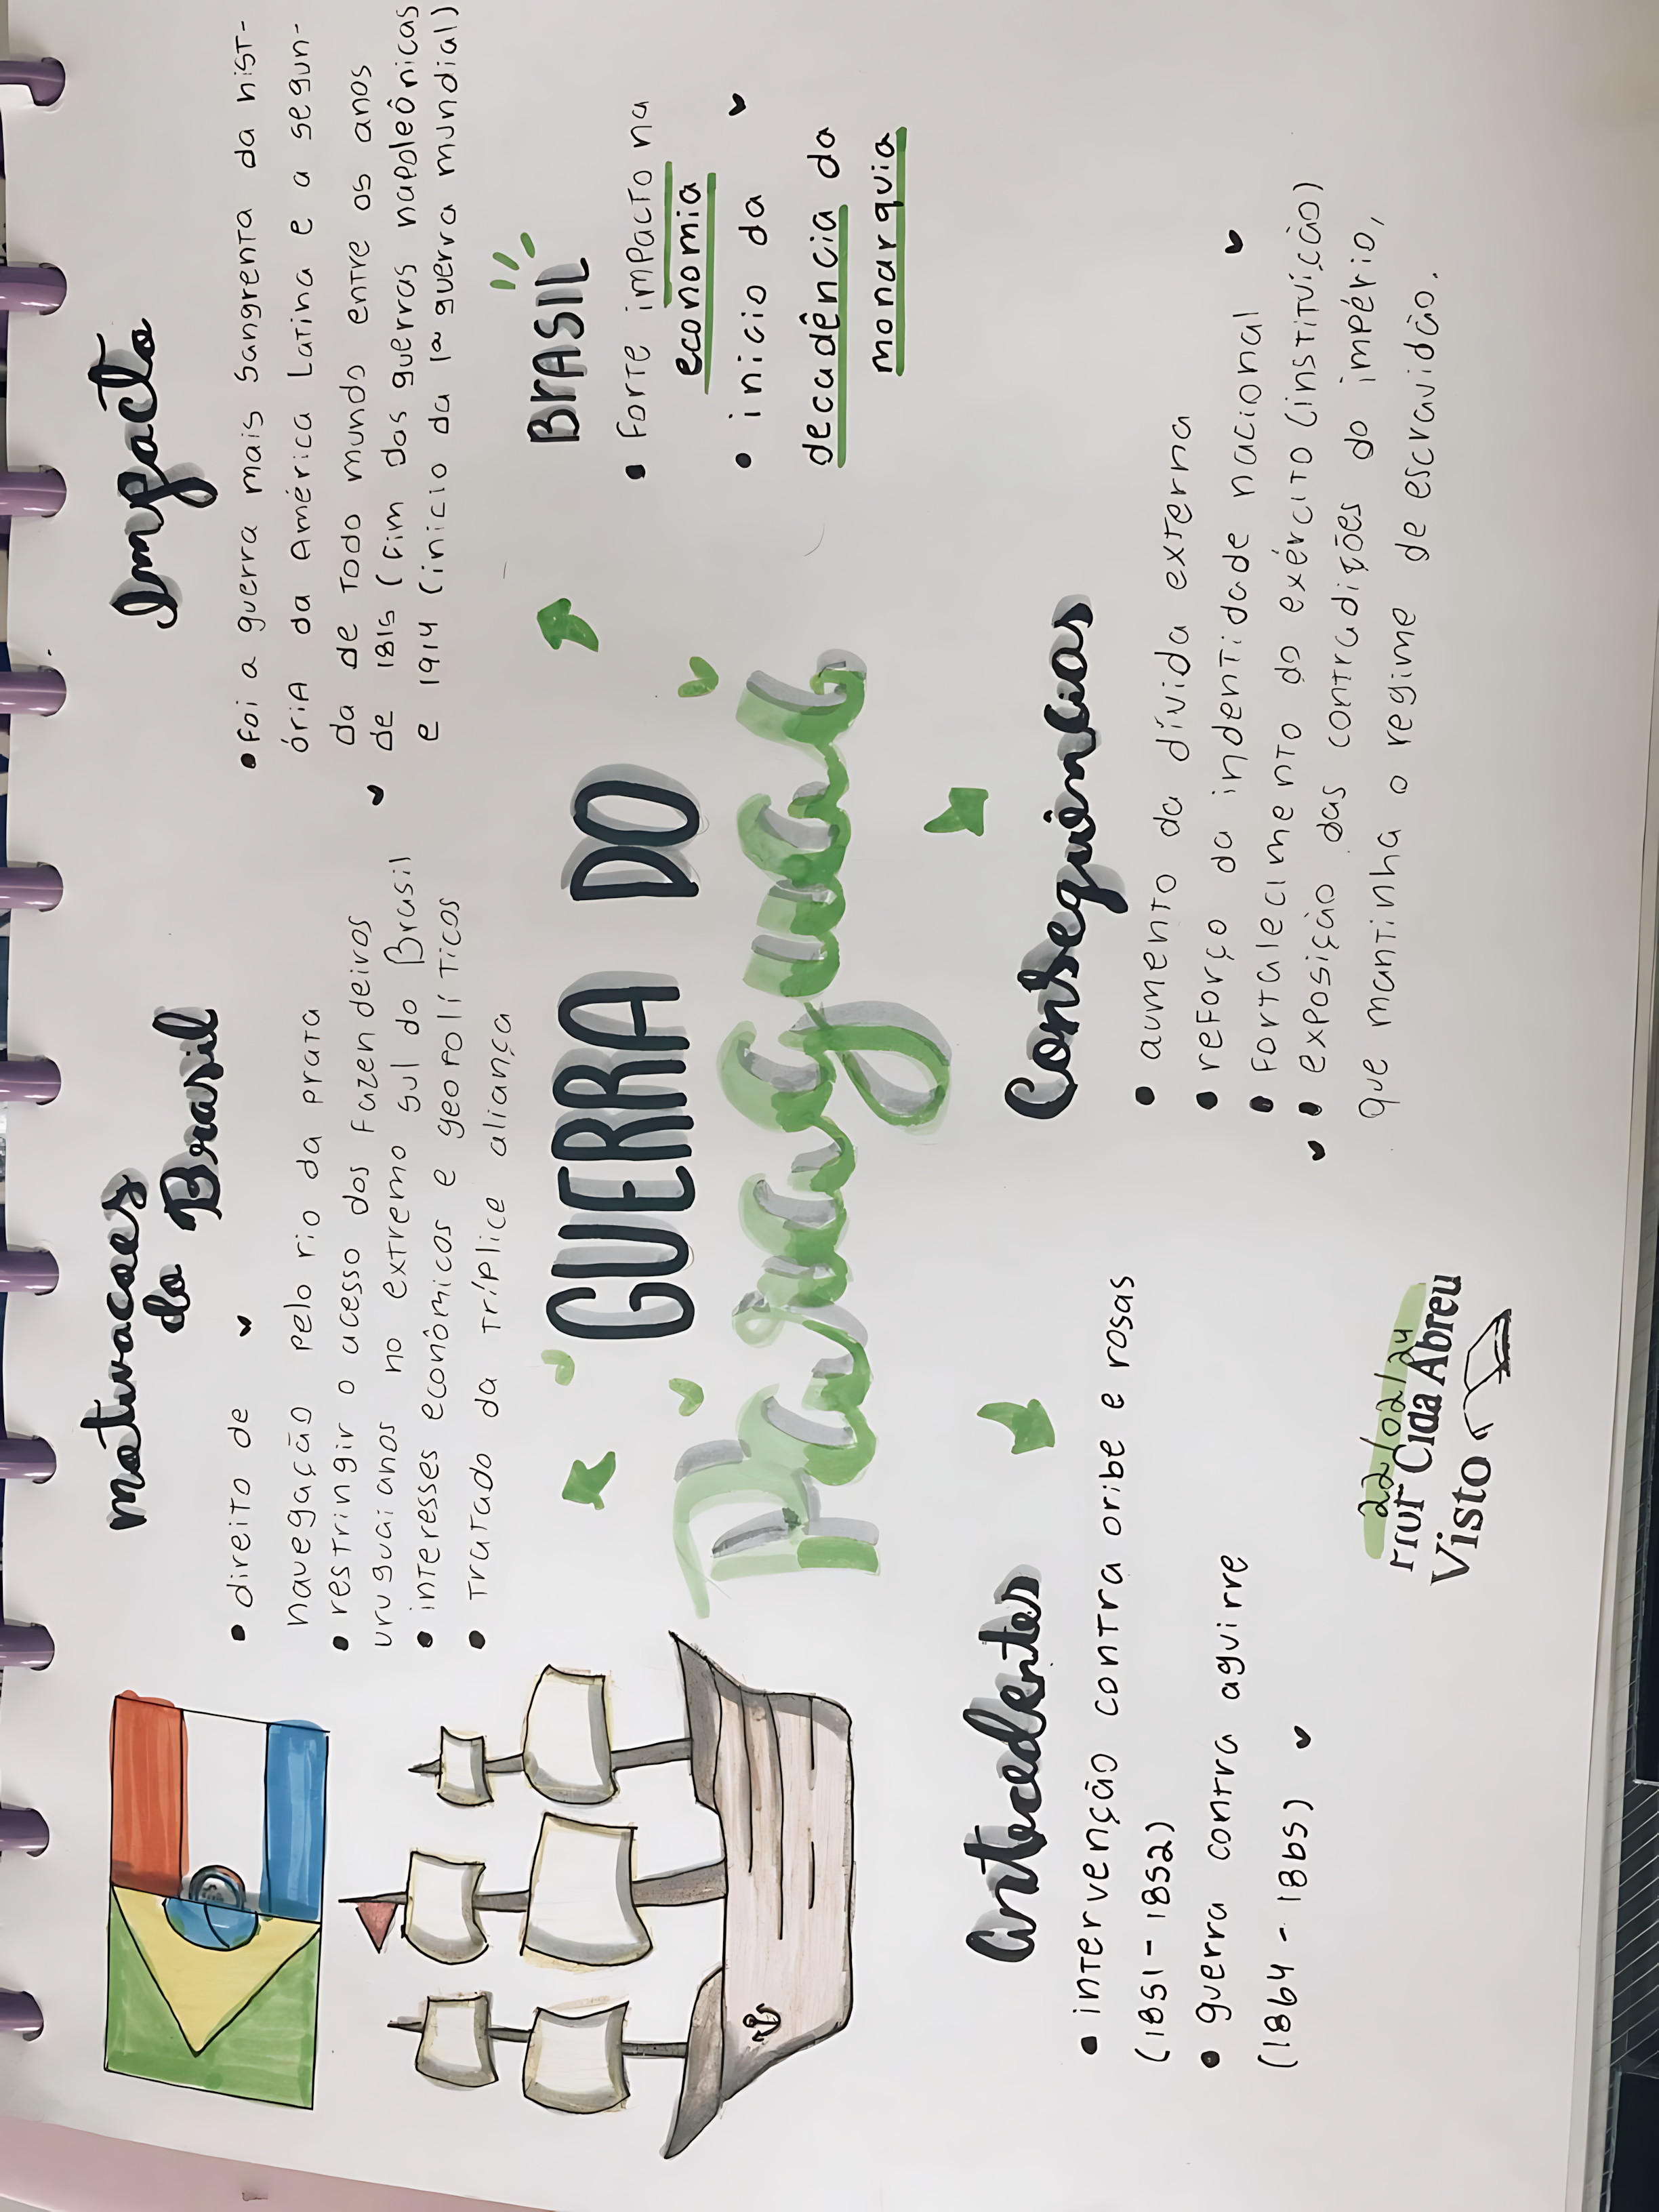 motivacoes
do Brasil
• direito de
navegação pelo rio da prata
• restringir o acesso dos fazendeiros
uruguaianos no extremo sul do Brasil
• interesses econômicos e geopolíticos
• tratado da tríplice aliança
Impacto
• foi a guerra mais sangrenta da hist-
ória da américa latina e a segun-
da de todo mundo entre os anos
de 1815 (fim das guerras napoleônicas
e 1914 (inicio da 1ª guerra mundial)
GUERRA DO
Paraguai
BRASIL
• forte impacto na
economia
• inicio da
decadência da
monarquia
antecedentes
• intervenção contra oribe e rosas
(1851 - 1852)
• guerra contra aguirre
(1864 - 1865)
Consequências
• aumento da dívida externa
• reforço da indentidade nacional
• fortalecimento do exército (instituição)
• exposição das contradições do império,
que mantinha o regime de escravidão.
22/02/24
Prof Cida Abreu
Visto